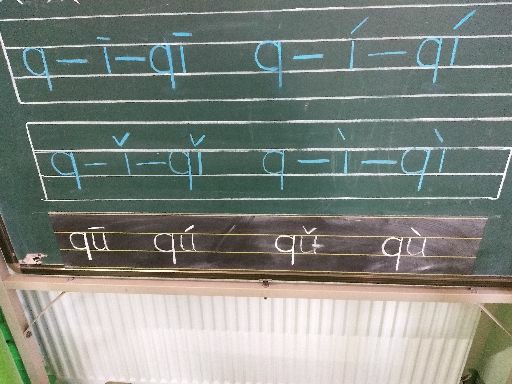 q – ī – qī q – í – qí
q – ǐ – qǐ q – ì – qì
qū qú qǔ qù